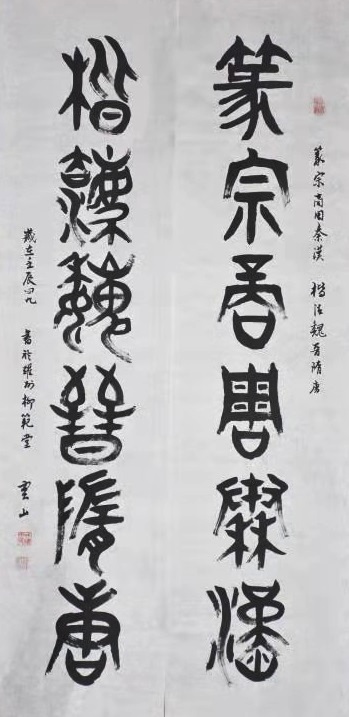 篆宗商周秦漢
篆宗商周秦漢 楷法魏晉隋唐
楷法魏晉隋唐
歲在壬辰四九 書於耀州柳範堂 雲山